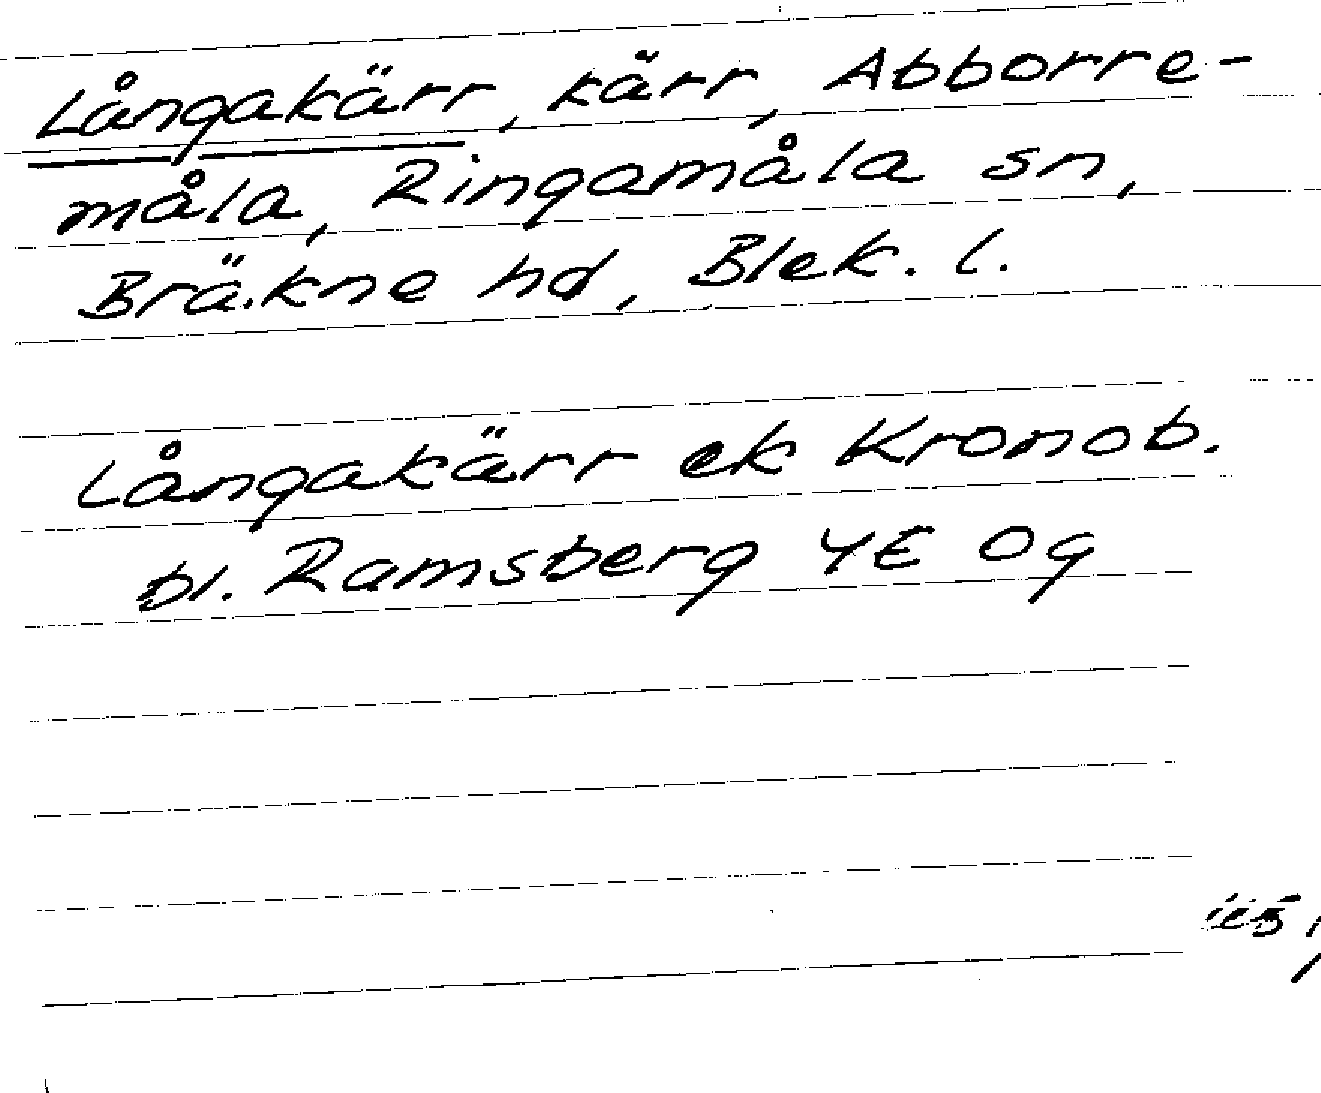 Långakärr, kärr, Abborre-
måla, Ringamåla sn,
Bräkne hd, Blek. l.
Långakärr ek Kronob.
bl. Ramsberg 4E Og